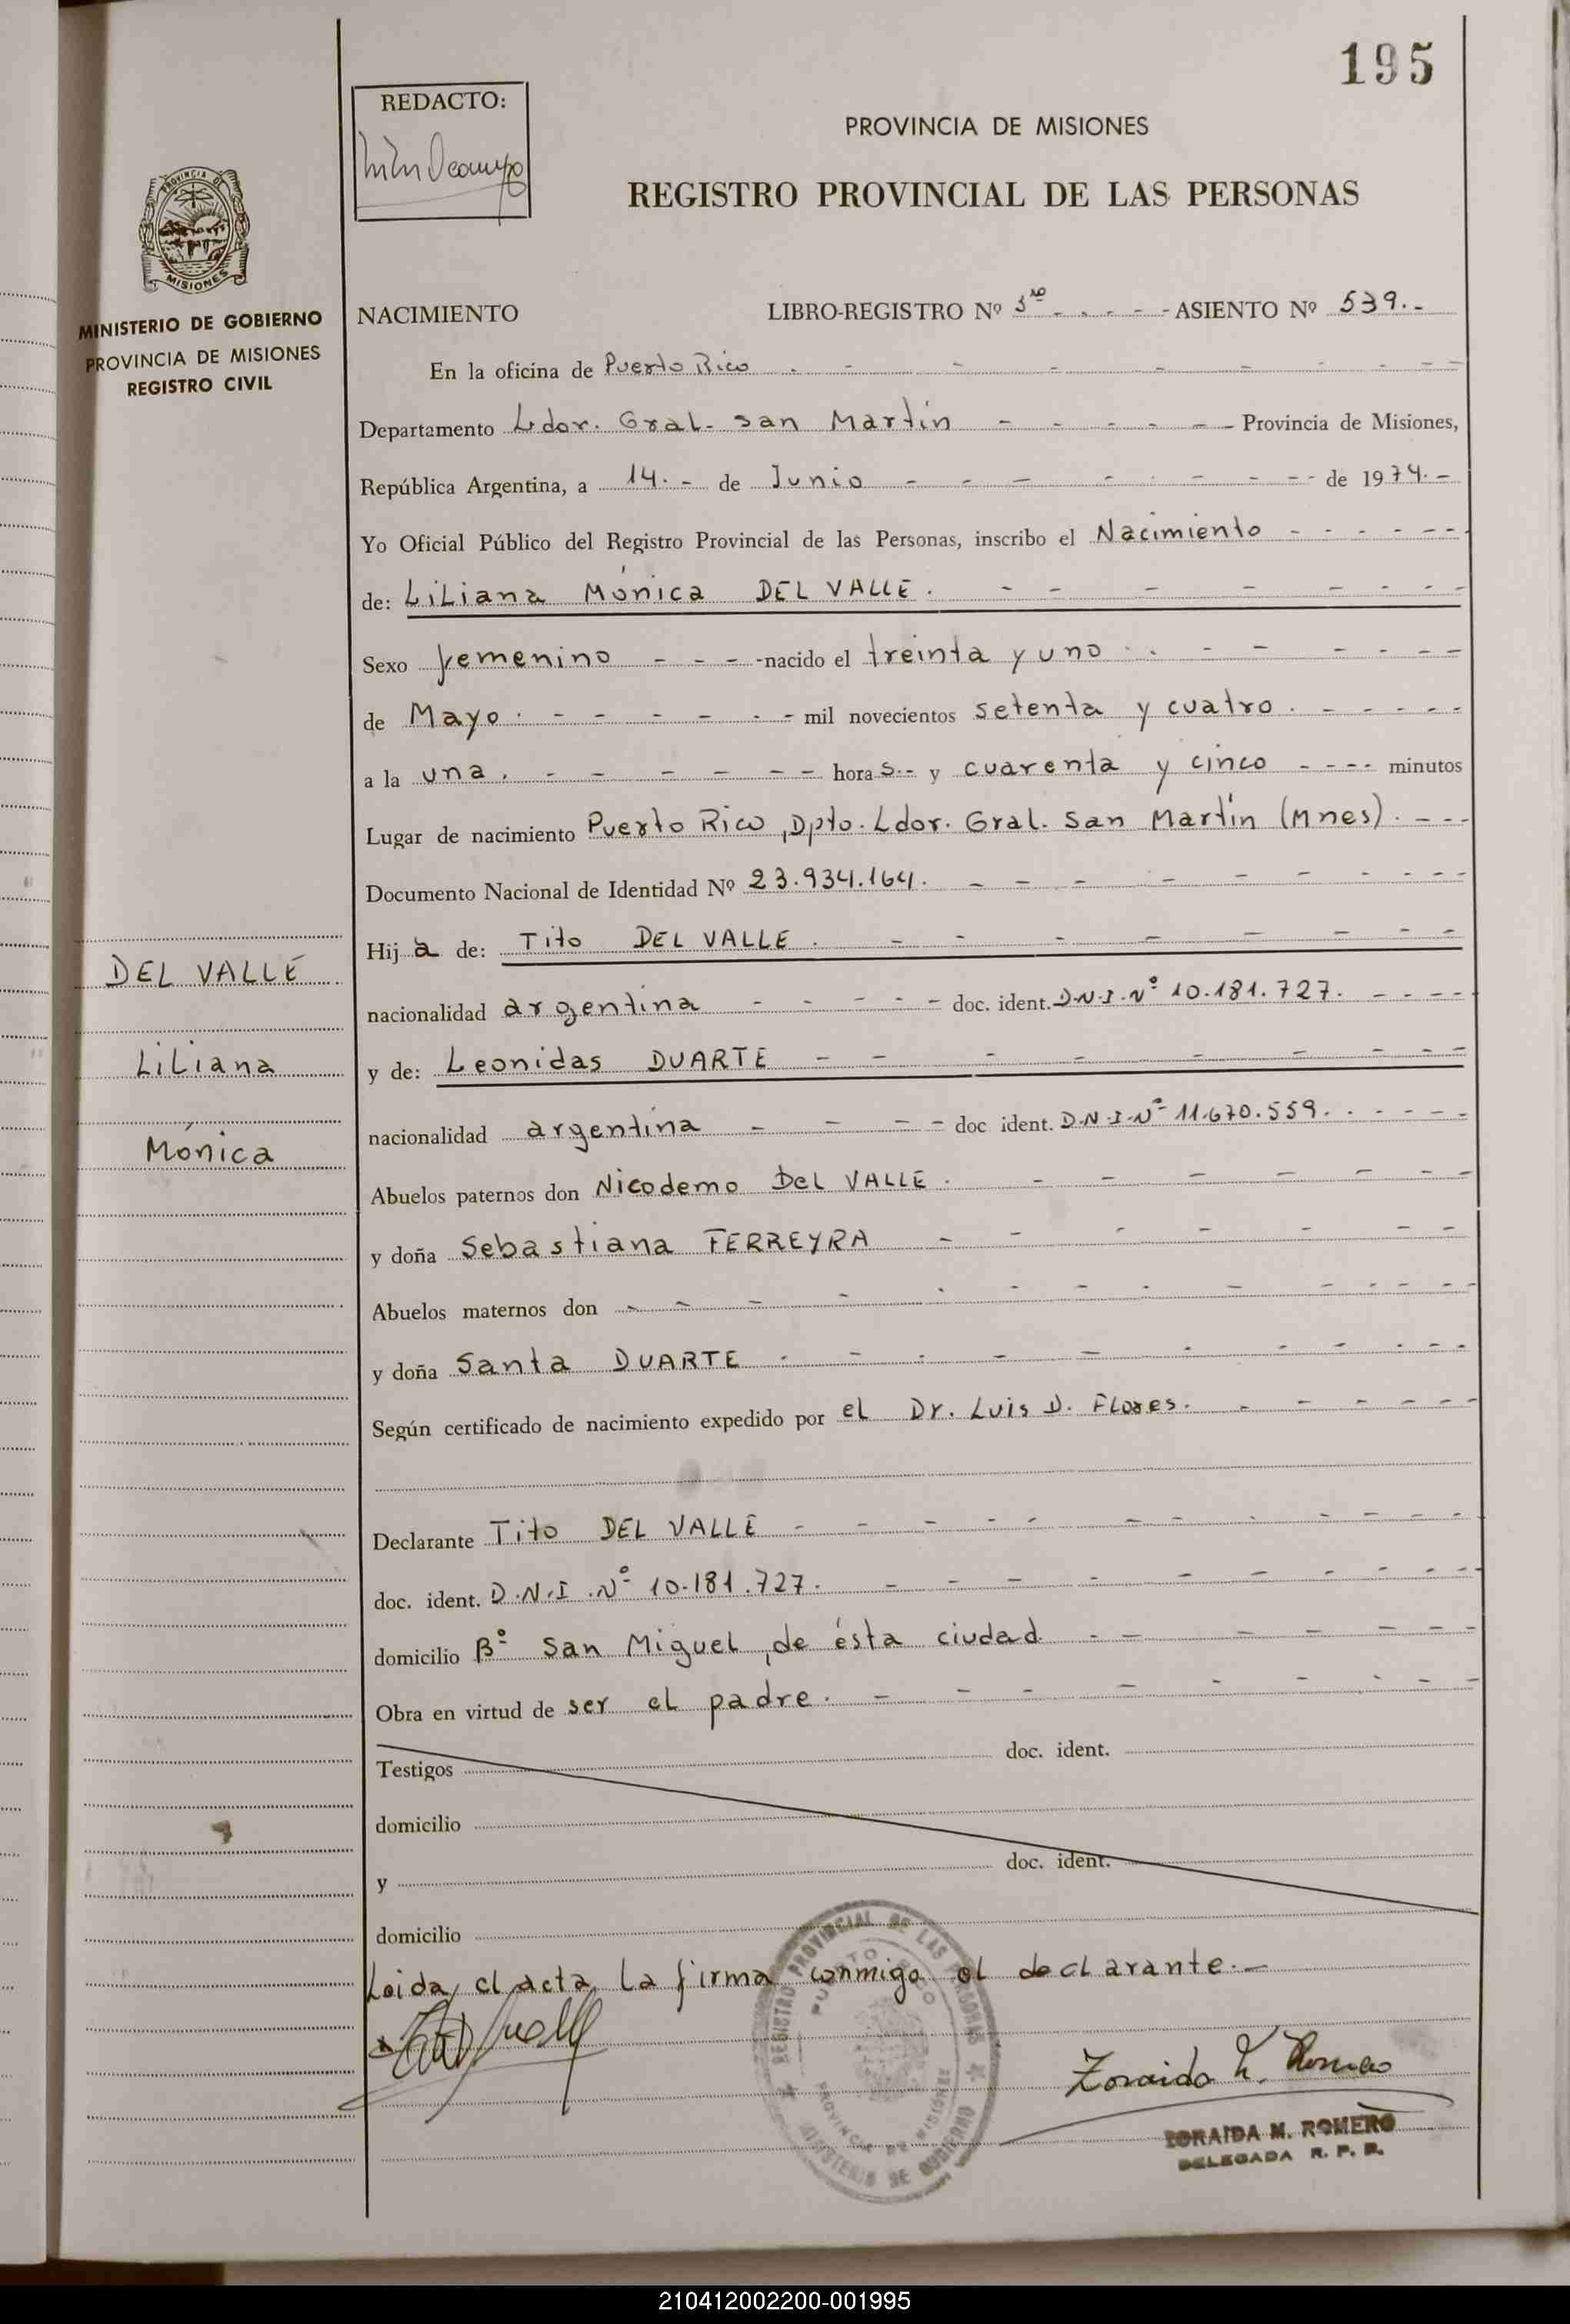 195
REDACTO:
PROVINCIA DE MISIONES
REGISTRO PROVINCIAL DE LAS PERSONAS
PROVINCIA DE
MISIONES
MINISTERIO DE GOBIERNO
PROVINCIA DE MISIONES
REGISTRO CIVIL
NACIMIENTO LIBRO-REGISTRO Nº 3ro ASIENTO Nº 539.-
En la oficina de Puerto Rico
Departamento Ldor. Gral. San Martín Provincia de Misiones,
República Argentina, a 14.- de Junio de 1974.-
Yo Oficial Público del Registro Provincial de las Personas, inscribo el Nacimiento
de: Liliana Mónica DEL VALLE.
Sexo femenino nacido el treinta y uno
de Mayo mil novecientos setenta y cuatro.
a la una, hora s.- y cuarenta y cinco minutos
Lugar de nacimiento Puerto Rico, Dpto. Ldor. Gral. San Martín (Mnes).
Documento Nacional de Identidad Nº 23.934.164.
Hij a de: Tito DEL VALLE.
nacionalidad argentina doc. ident. D.N.I. Nº 10.181.727.
y de: Leonidas DUARTE
nacionalidad argentina doc ident. D.N.I. Nº 11.670.559.
Abuelos paternos don Nicodemo Del VALLE.
y doña Sebastiana FERREYRA
Abuelos maternos don
y doña Santa DUARTE
Según certificado de nacimiento expedido por el Dr. Luis D. Flores.
Declarante Tito DEL VALLE
doc. ident. D.N.I. Nº 10.181.727.
domicilio Bº San Miguel, de ésta ciudad
Obra en virtud de ser el padre.
Testigos doc. ident.
domicilio
y doc. ident.
domicilio
Leida el acta, la firma conmigo el declarante.-
DEL VALLE
Liliana
Mónica
REGISTRO PROVINCIAL DE LAS PERSONAS
PUERTO RICO
PROVINCIA DE MISIONES
MINISTERIO DE GOBIERNO
Zoraida M. Romero
ZORAIDA M. ROMERO
DELEGADA R. P. P.
210412002200-001995